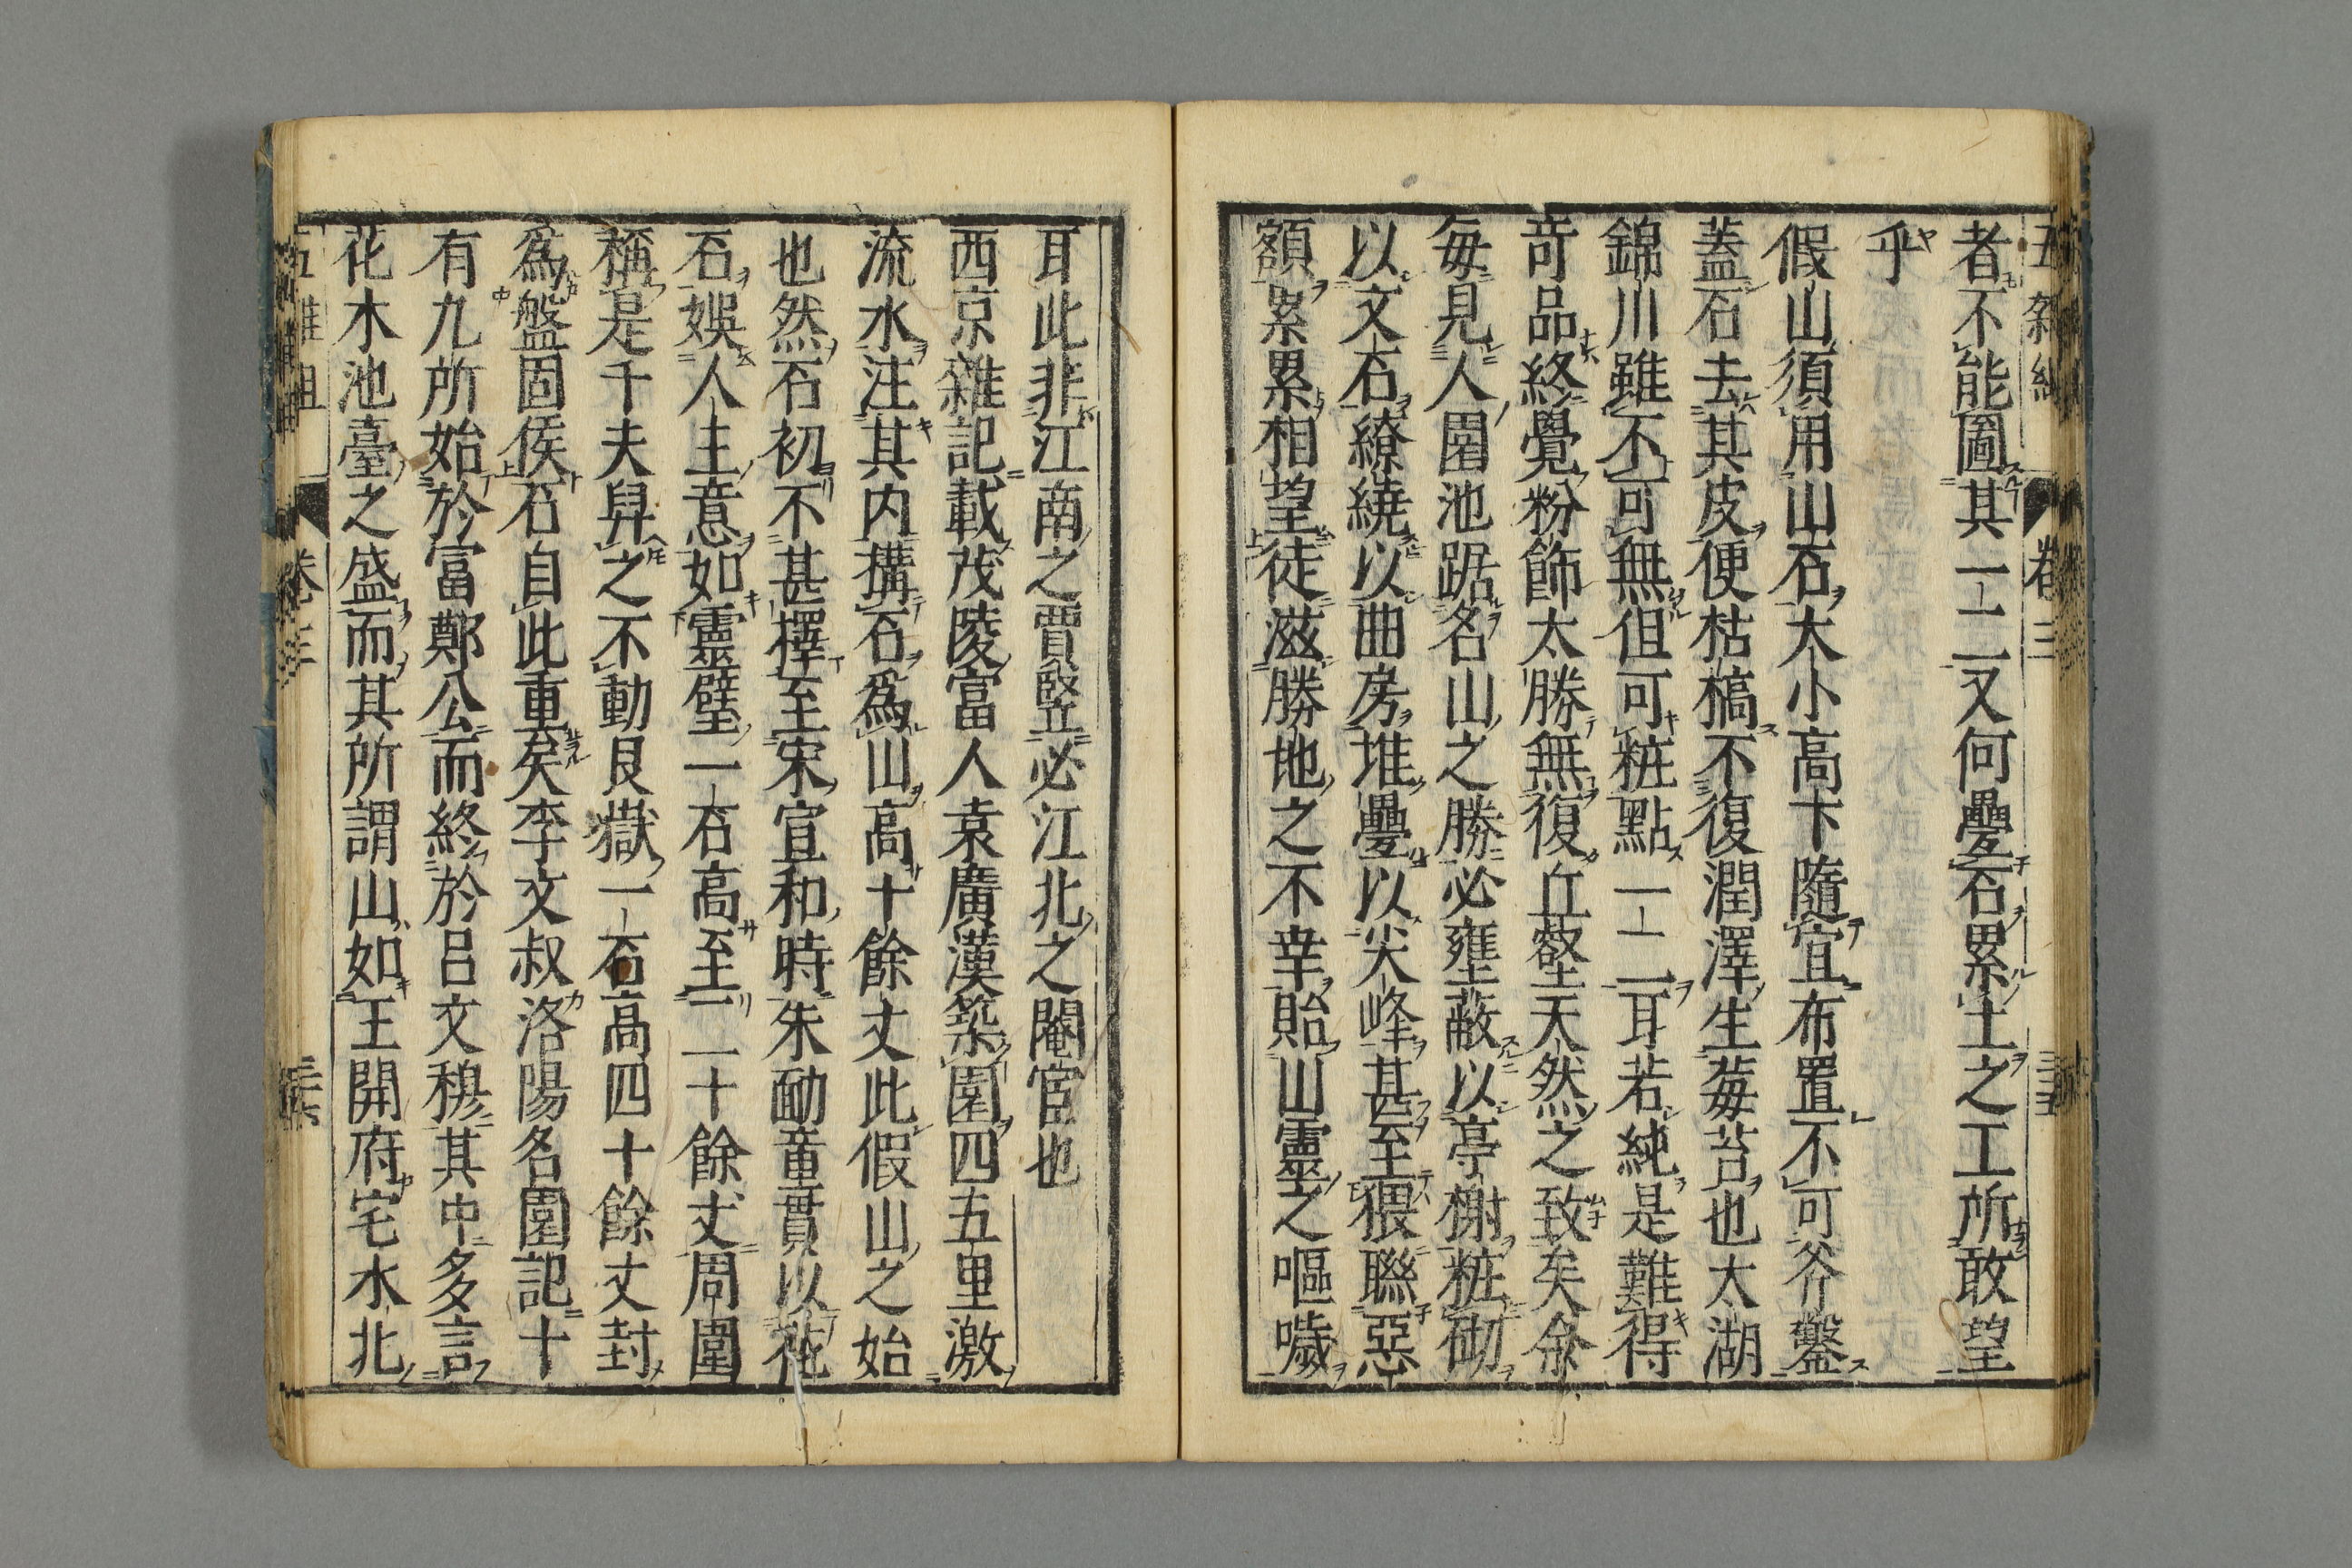 五雜組 卷三
者不能圖其一二又何疊石累土之工所敢望
乎
假山須用山石大小高下隨宜布置不可斧鑿
蓋石去其皮便枯槁不復潤澤生莓苔也太湖
錦川雖不可無但可粧點一二耳若純是難得
奇品終覺粉飾太勝無復丘壑天然之致矣余
每見人園池踞名山之勝必壅蔽以亭榭粧砌
以文石繚繞以曲房堆疊以尖峰甚至猥聯惡
額累累相望徒滋勝地之不幸貽山靈之嘔噦
耳此非江南之賈豎必江北之閹宦也
西京雜記載茂陵富人袁廣漢築園四五里激
流水注其内構石爲山高十餘丈此假山之始
也然石初不甚擇至宋宣和時朱勔童貫以花
石娛人主意如靈璧一石高至二十餘丈周圍
稱是千夫舁之不動艮嶽一石高四十餘丈封
爲盤固侯石自此重矣李文叔洛陽名園記十
有九所始於富鄭公而終於呂文穆其中多言
花木池臺之盛而其所謂山如王開府宅水北
五雜組 卷三